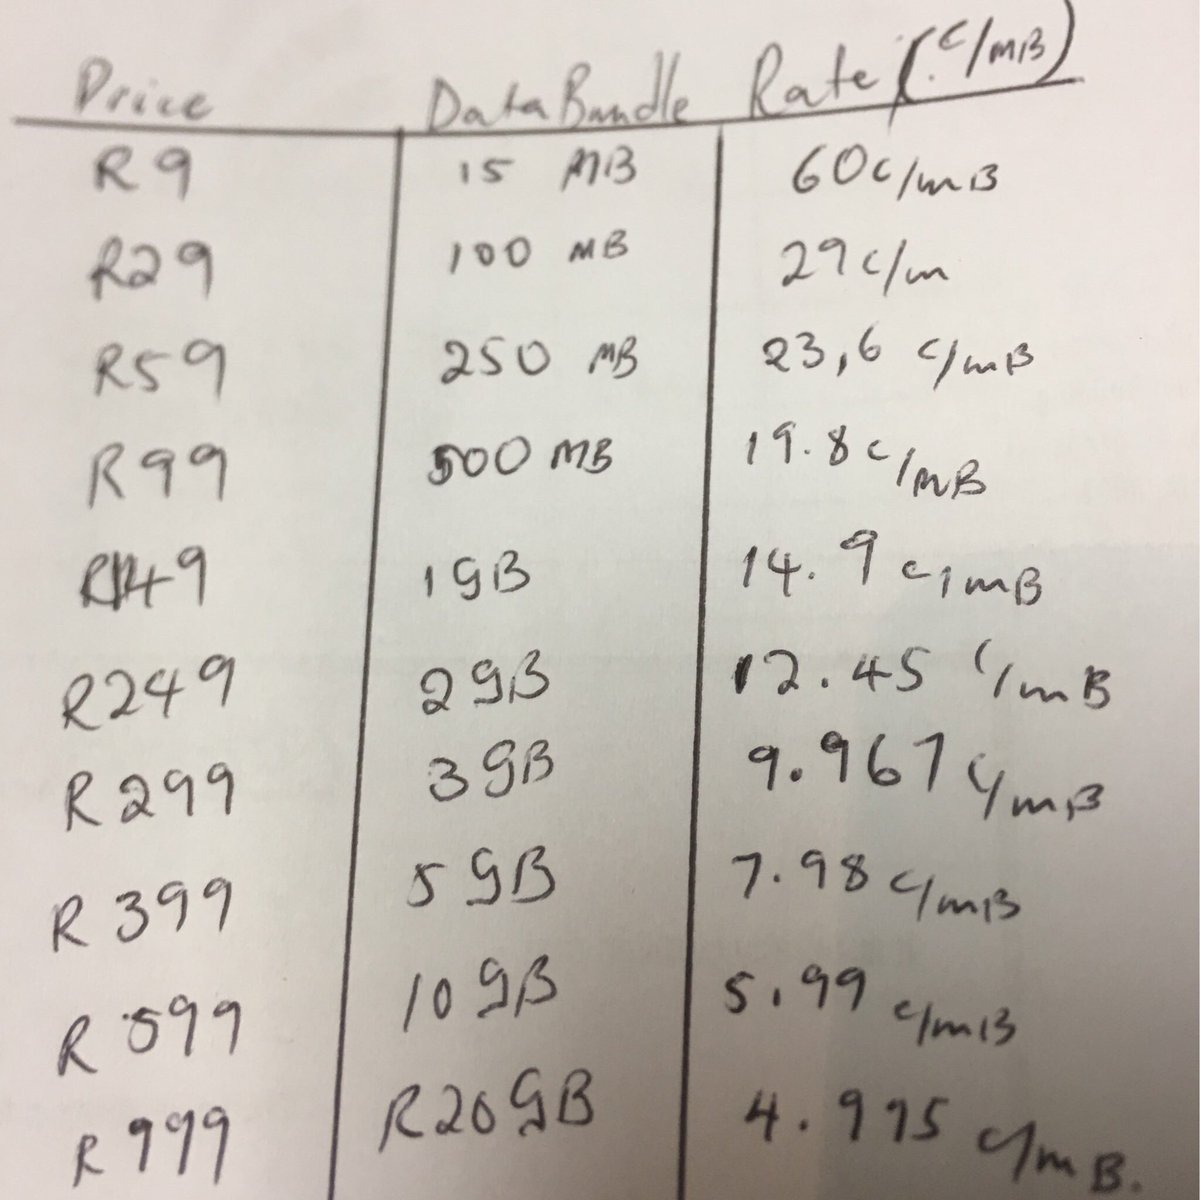 Price Data Bundle Rate (c/mB)
R9 15 MB 60c/mB
R29 100 MB 29c/m
R59 250 MB 23,6 c/mB
R99 500 MB 19.8c/mB
R149 1GB 14.9 c/mB
R249 2GB 12.45 c/mB
R299 3GB 9.967 c/mB
R399 5GB 7.98 c/mB
R599 10GB 5.99 c/mB
R999 R20GB 4.995 c/mB.